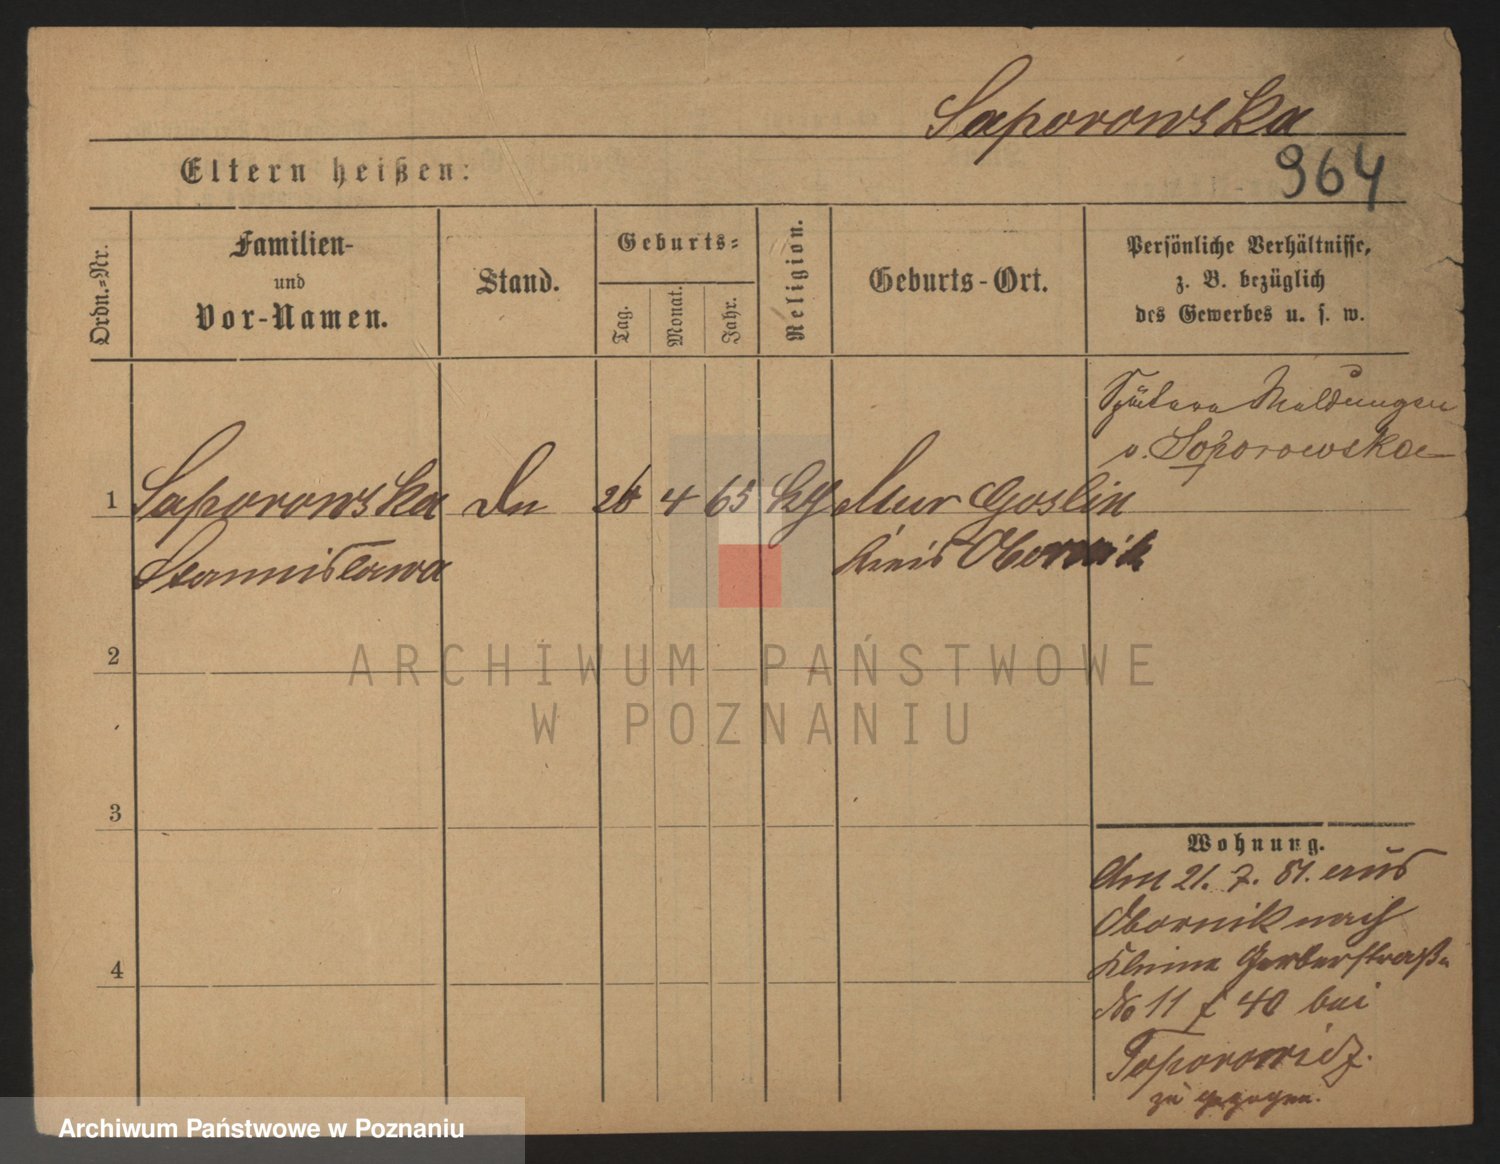 Saporowska
964
Eltern heißen:
Ordn.-Nr.
Familien-
und
Vor-Namen.
Stand.
Geburts-
Tag.
Monat.
Jahr.
Religion.
Geburts-Ort.
Persönliche Verhältnisse,
z. B. bezüglich
des Gewerbes u. s. w.
Spätere Meldungen
v. Soporowska
1 Saporowska 4 65 Mur Goslin
Stannislawa Kreis Obornik
2
3
4
Wohnung.
Am 21. 7. 81. aus
Obornik nach
Kleine Gerberstraße
No 11 40 bei
Toporowicz.
zu gezogen.
ARCHIWUM PAŃSTWOWE
W POZNANIU
Archiwum Państwowe w Poznaniu